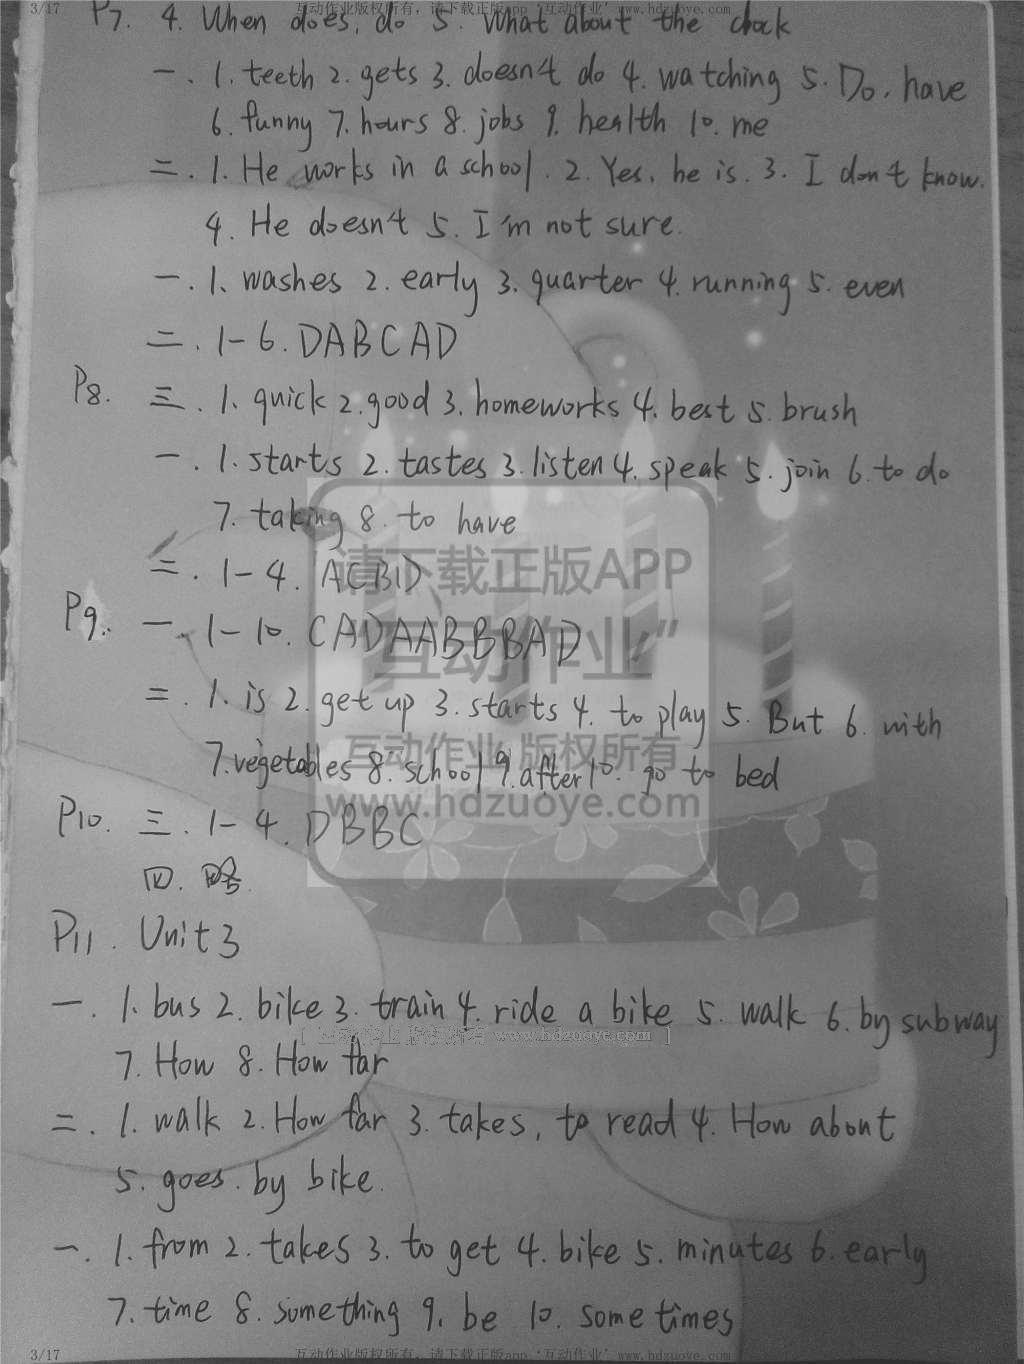 3/17 互动作业版权所有，请下载正版app‘互动作业’www.hdzuoye.com
P7. 4. When does, do 5. What about the clock
一. 1. teeth 2. gets 3. doesn't do 4. watching 5. Do, have
6. funny 7. hours 8. jobs 9. health 10. me
二. 1. He works in a school. 2. Yes, he is. 3. I don't know.
4. He doesn't 5. I'm not sure.
一. 1. washes 2. early 3. quarter 4. running 5. even
二. 1-6. DABCAD
P8. 三. 1. quick 2. good 3. homeworks 4. best 5. brush
一. 1. starts 2. tastes 3. listen 4. speak 5. join 6. to do
7. taking 8. to have
二. 1-4. ACBD
请下载正版APP
P9. 一. 1-10. CADAABBBAD
“互动作业”
二. 1. is 2. get up 3. starts 4. to play 5. But 6. with
互动作业 版权所有
7. vegetables 8. school 9. after 10. go to bed
www.hdzuoye.com
P10. 三. 1-4. DBBC
四. 略.
P11. Unit 3
一. 1. bus 2. bike 3. train 4. ride a bike 5. walk 6. by subway
[ 互动作业 版权所有 www.hdzuoye.com ]
7. How 8. How far
二. 1. walk 2. How far 3. takes, to read 4. How about
5. goes. by bike.
一. 1. from 2. takes 3. to get 4. bike 5. minutes 6. early
7. time 8. something 9. be 10. sometimes
3/17 互动作业版权所有，请下载正版app‘互动作业’www.hdzuoye.com